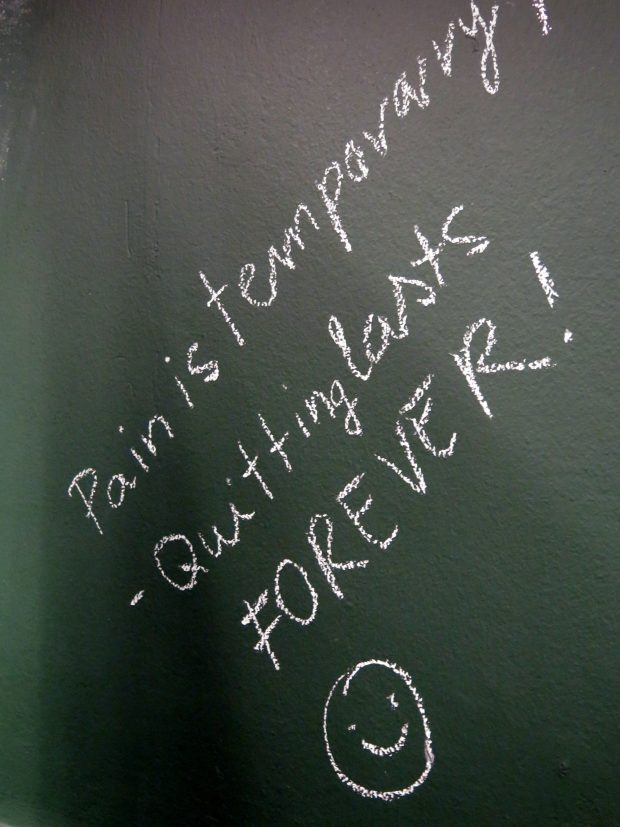 Pain is temporarry!
- Quitting lasts
FOREVER!